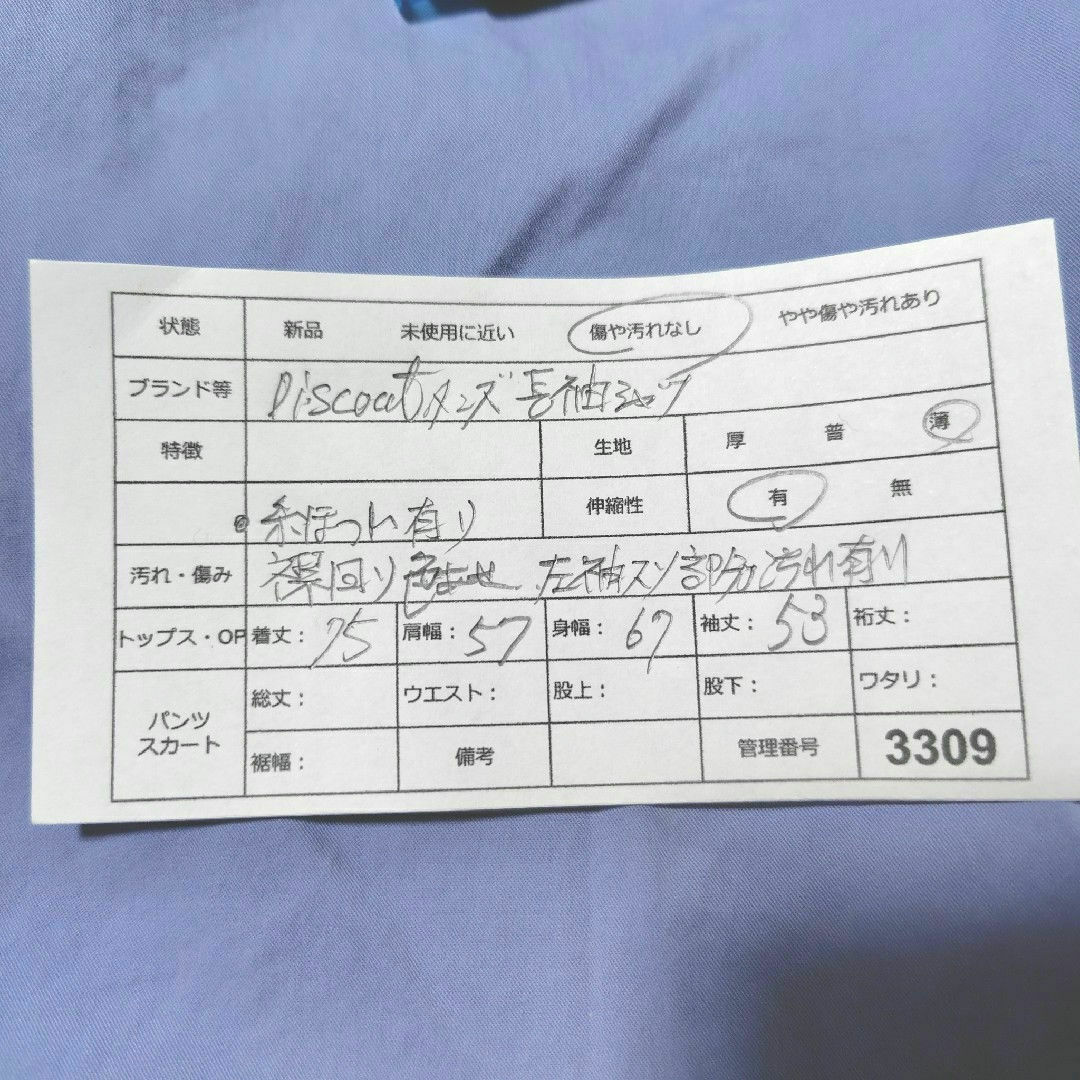 状態 新品 未使用に近い 傷や汚れなし やや傷や汚れあり
ブランド等 Discoatメンズ 長袖シャツ
特徴 生地 厚 普 薄
糸ほつれ有り 伸縮性 有 無
汚れ・傷み 襟回り色あせ 左袖スソ部分汚れ有り
トップス・OP 着丈: 75 肩幅: 57 身幅: 67 袖丈: 53 裄丈:
パンツ スカート 総丈: ウエスト: 股上: 股下: ワタリ:
裾幅: 備考 管理番号 3309